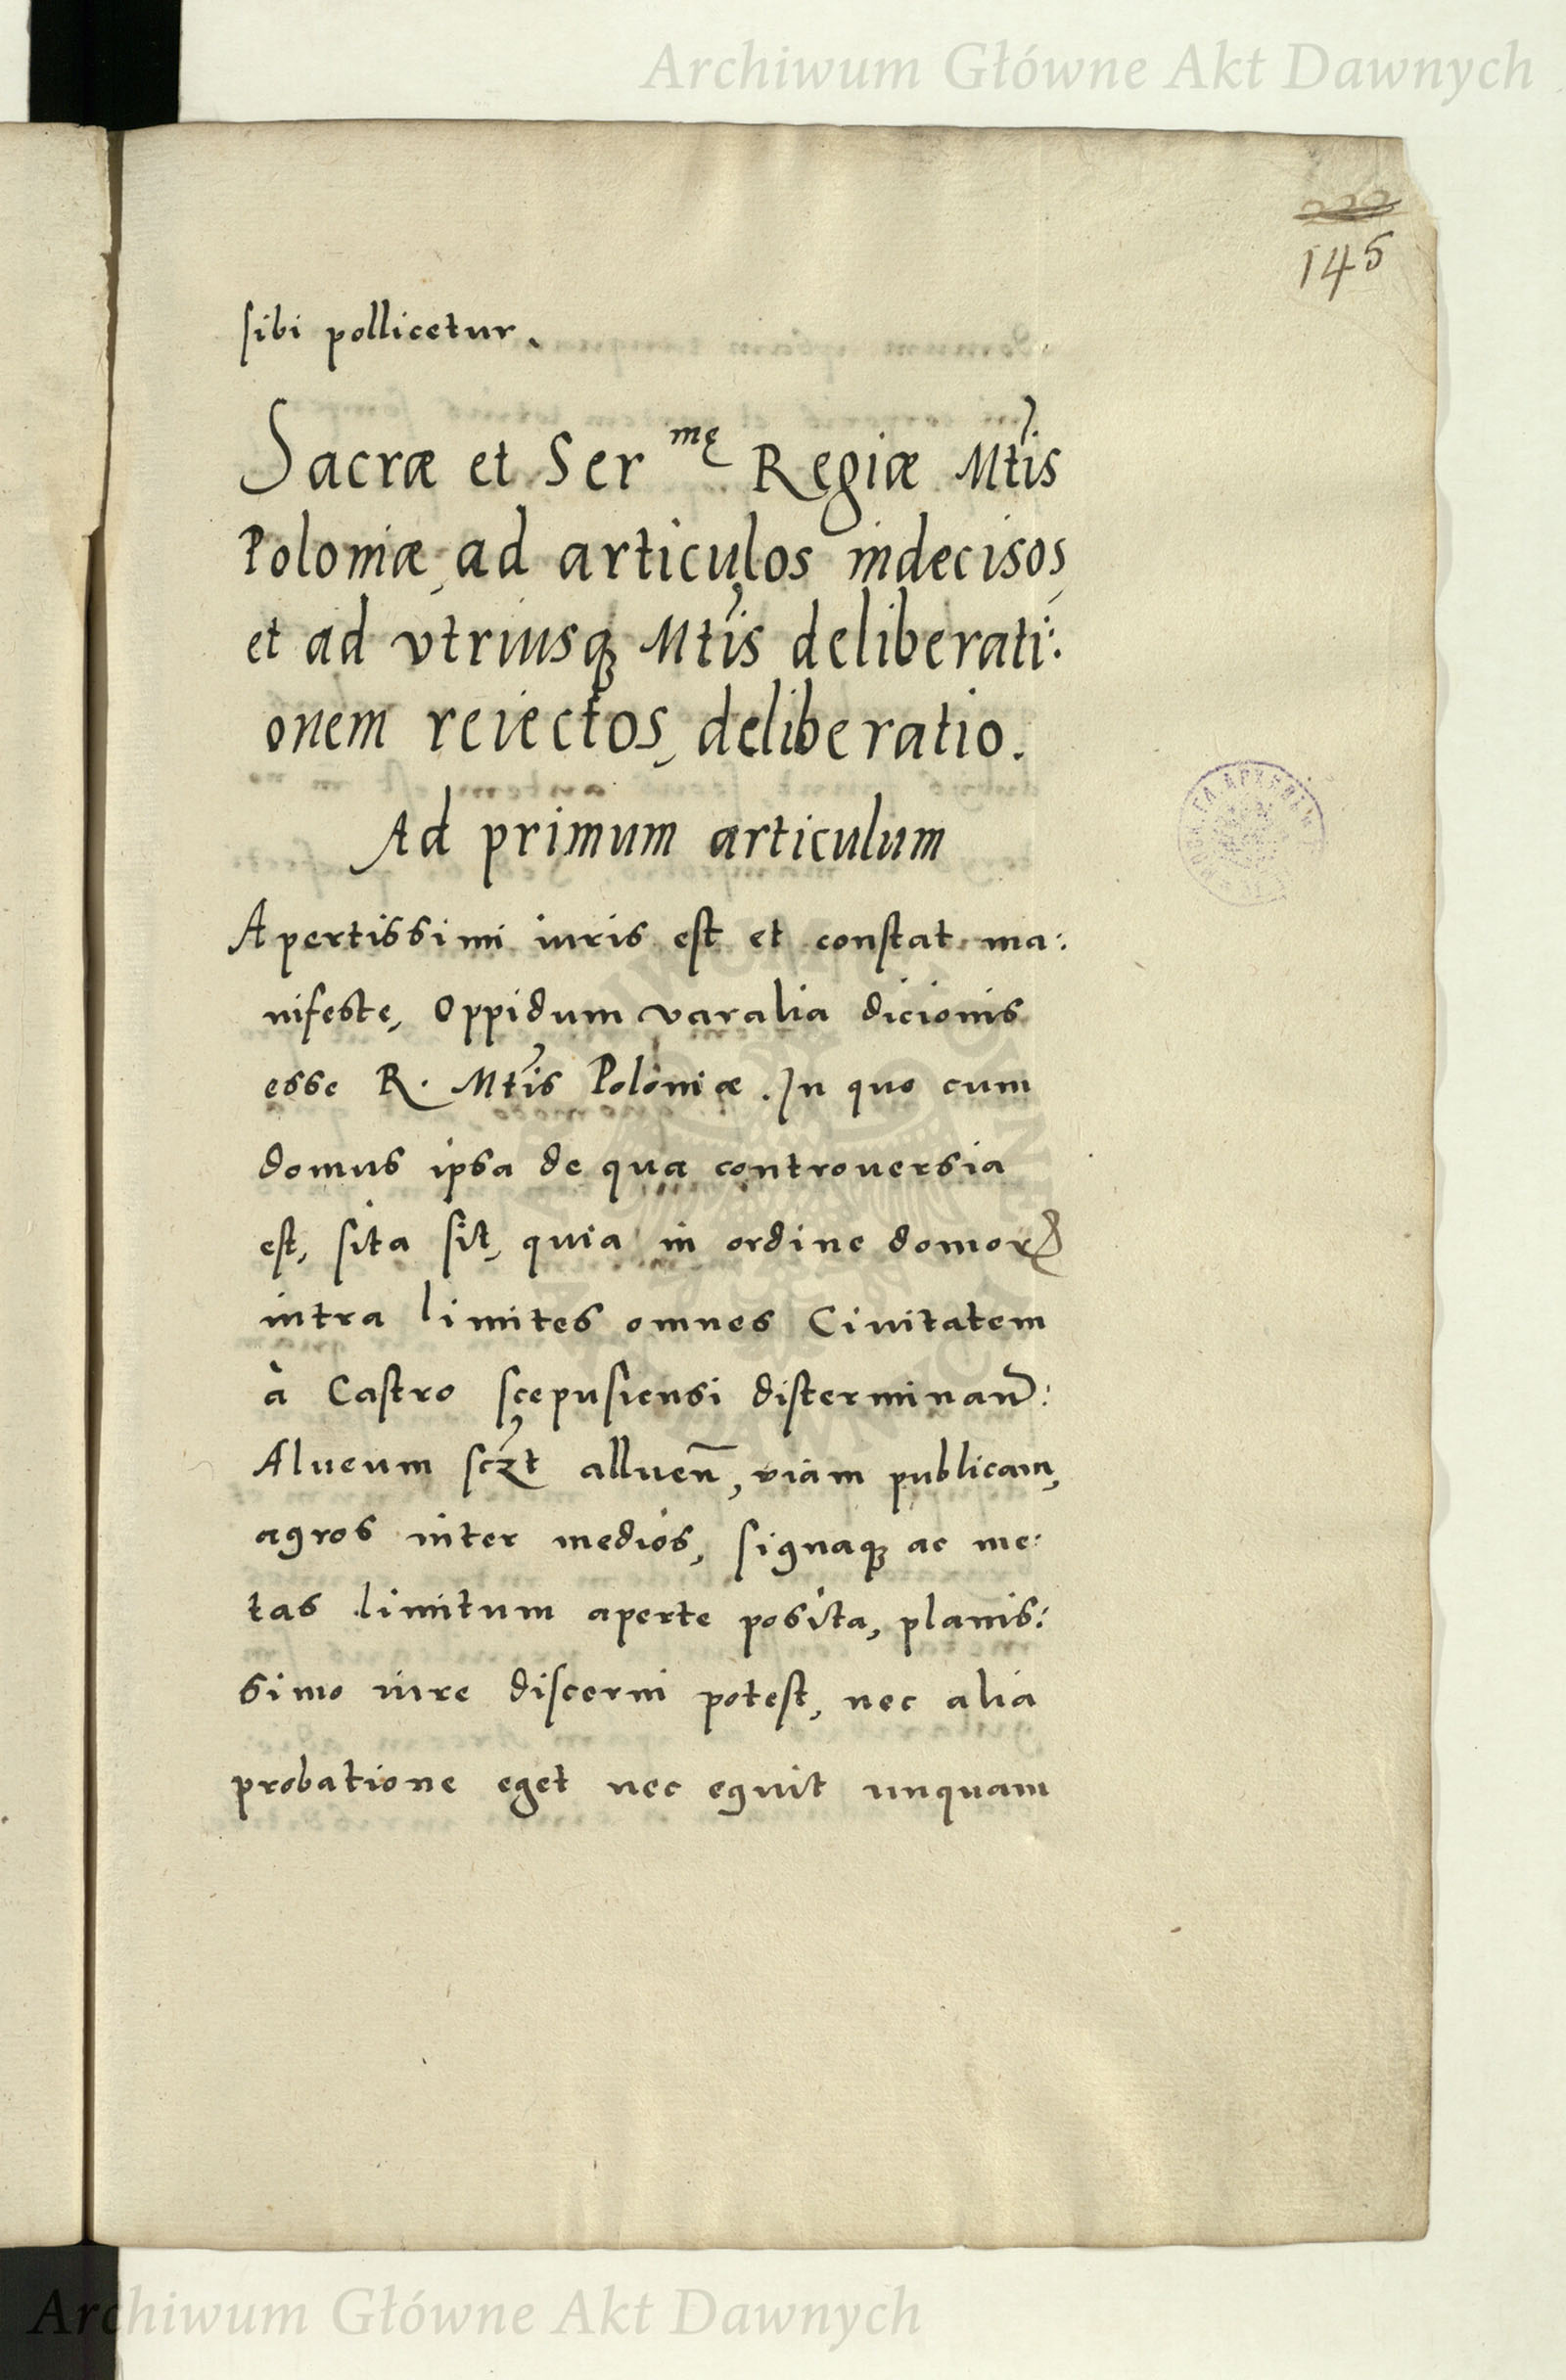 Archiwum Główne Akt Dawnych
145
sibi pollicetur.
Sacræ et Ser mę Regiæ Mtis
Poloniæ, ad articulos indecisos,
et ad vtriusq; Mtis deliberati:
onem reiectos, deliberatio.
Ad primum articulum
Apertissimi iuris est et constat ma:
nifeste, Oppidum varalia dicionis
esse R. Mtis Poloniæ. In quo cum
domus ipsa de qua controuersia
est, sita sit, quia in ordine domorꝝ
intra limites omnes Ciuitatem
à Castro scepusiensi disterminan:
Alueum sczt alluen̄, viam publicam,
agros inter medios, signaq; ac me:
tas limitum aperte posita, planis:
simo iure discerni potest, nec alia
probatione eget nec eguit unquam
Archiwum Główne Akt Dawnych